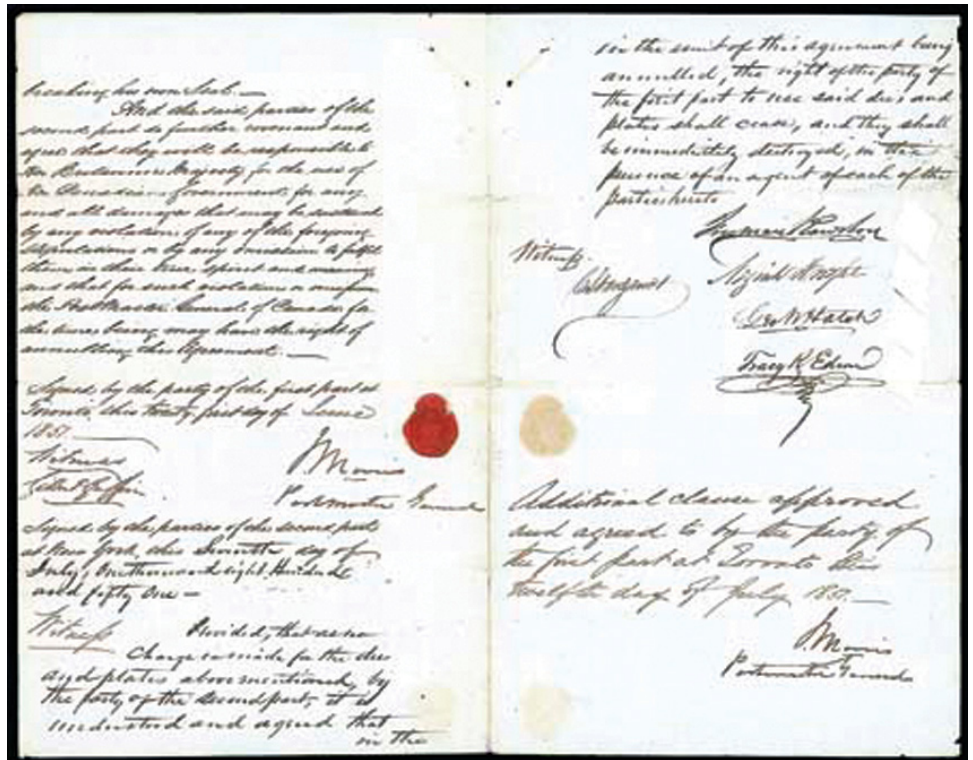 breaking his own Seal. —
And the said parties of the
second part do further covenant and
agree that they will be responsible to
Her Britannic Majesty for the use of
the Canadian Government for any
and all damages that may be sustained
by any violation of any of the foregoing
stipulations or by any omission to fulfil
them in their true spirit and meaning
and that for such violation or omission
the Post Master General of Canada for
the time being may have the right of
annulling this Agreement. —
Signed by the party of the first part at
Toronto, this twenty first day of June
1851.
Witness
J Morris
Postmaster General
Signed by the parties of the second part
at New York, this Seventh day of
July, One thousand eight Hundred
and fifty One —
Witness
Provided, that as no
Charge is made for the dies
and plates above mentioned, by
the party of the second part, it is
understood and agreed that
in the
in the event of this agreement being
annulled, the right of the party of
the first part to use said dies and
plates shall cease, and they shall
be immediately destroyed, in the
presence of an agent of each of the
parties hereto
Witness.
Freeman Rawdon
Neziah Wright
Geo W Hatch
Tracy R Edson
Additional clause approved
and agreed to by the party of
the first part at Toronto this
twelfth day of July 1851. —
J Morris
Postmaster General